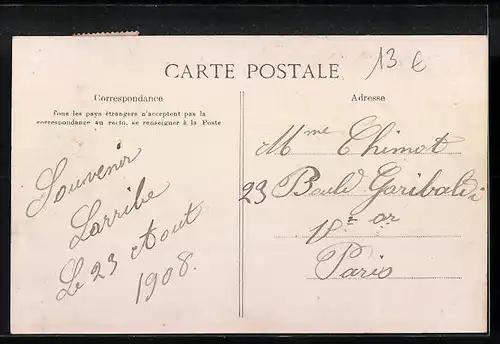 CARTE POSTALE
13 €
Correspondance
Tous les pays étrangers n'acceptent pas la
correspondance au recto, se renseigner à la Poste
Souvenir
Larribe
Le 23 Aout
1908.
Adresse
Mme Thimot
23 Bould Garibaldi
ar
Paris